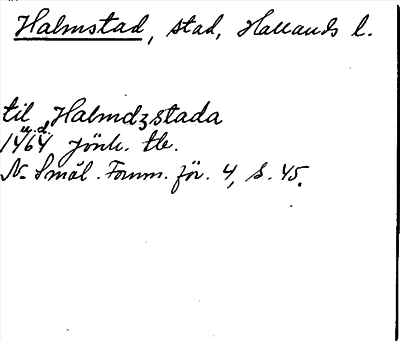 Halmstad, stad, Hallands l.
til Halmdzstada
u.d.
1464 Jönk. tb.
N. Smål. Fornm. för. 4, s. 45.